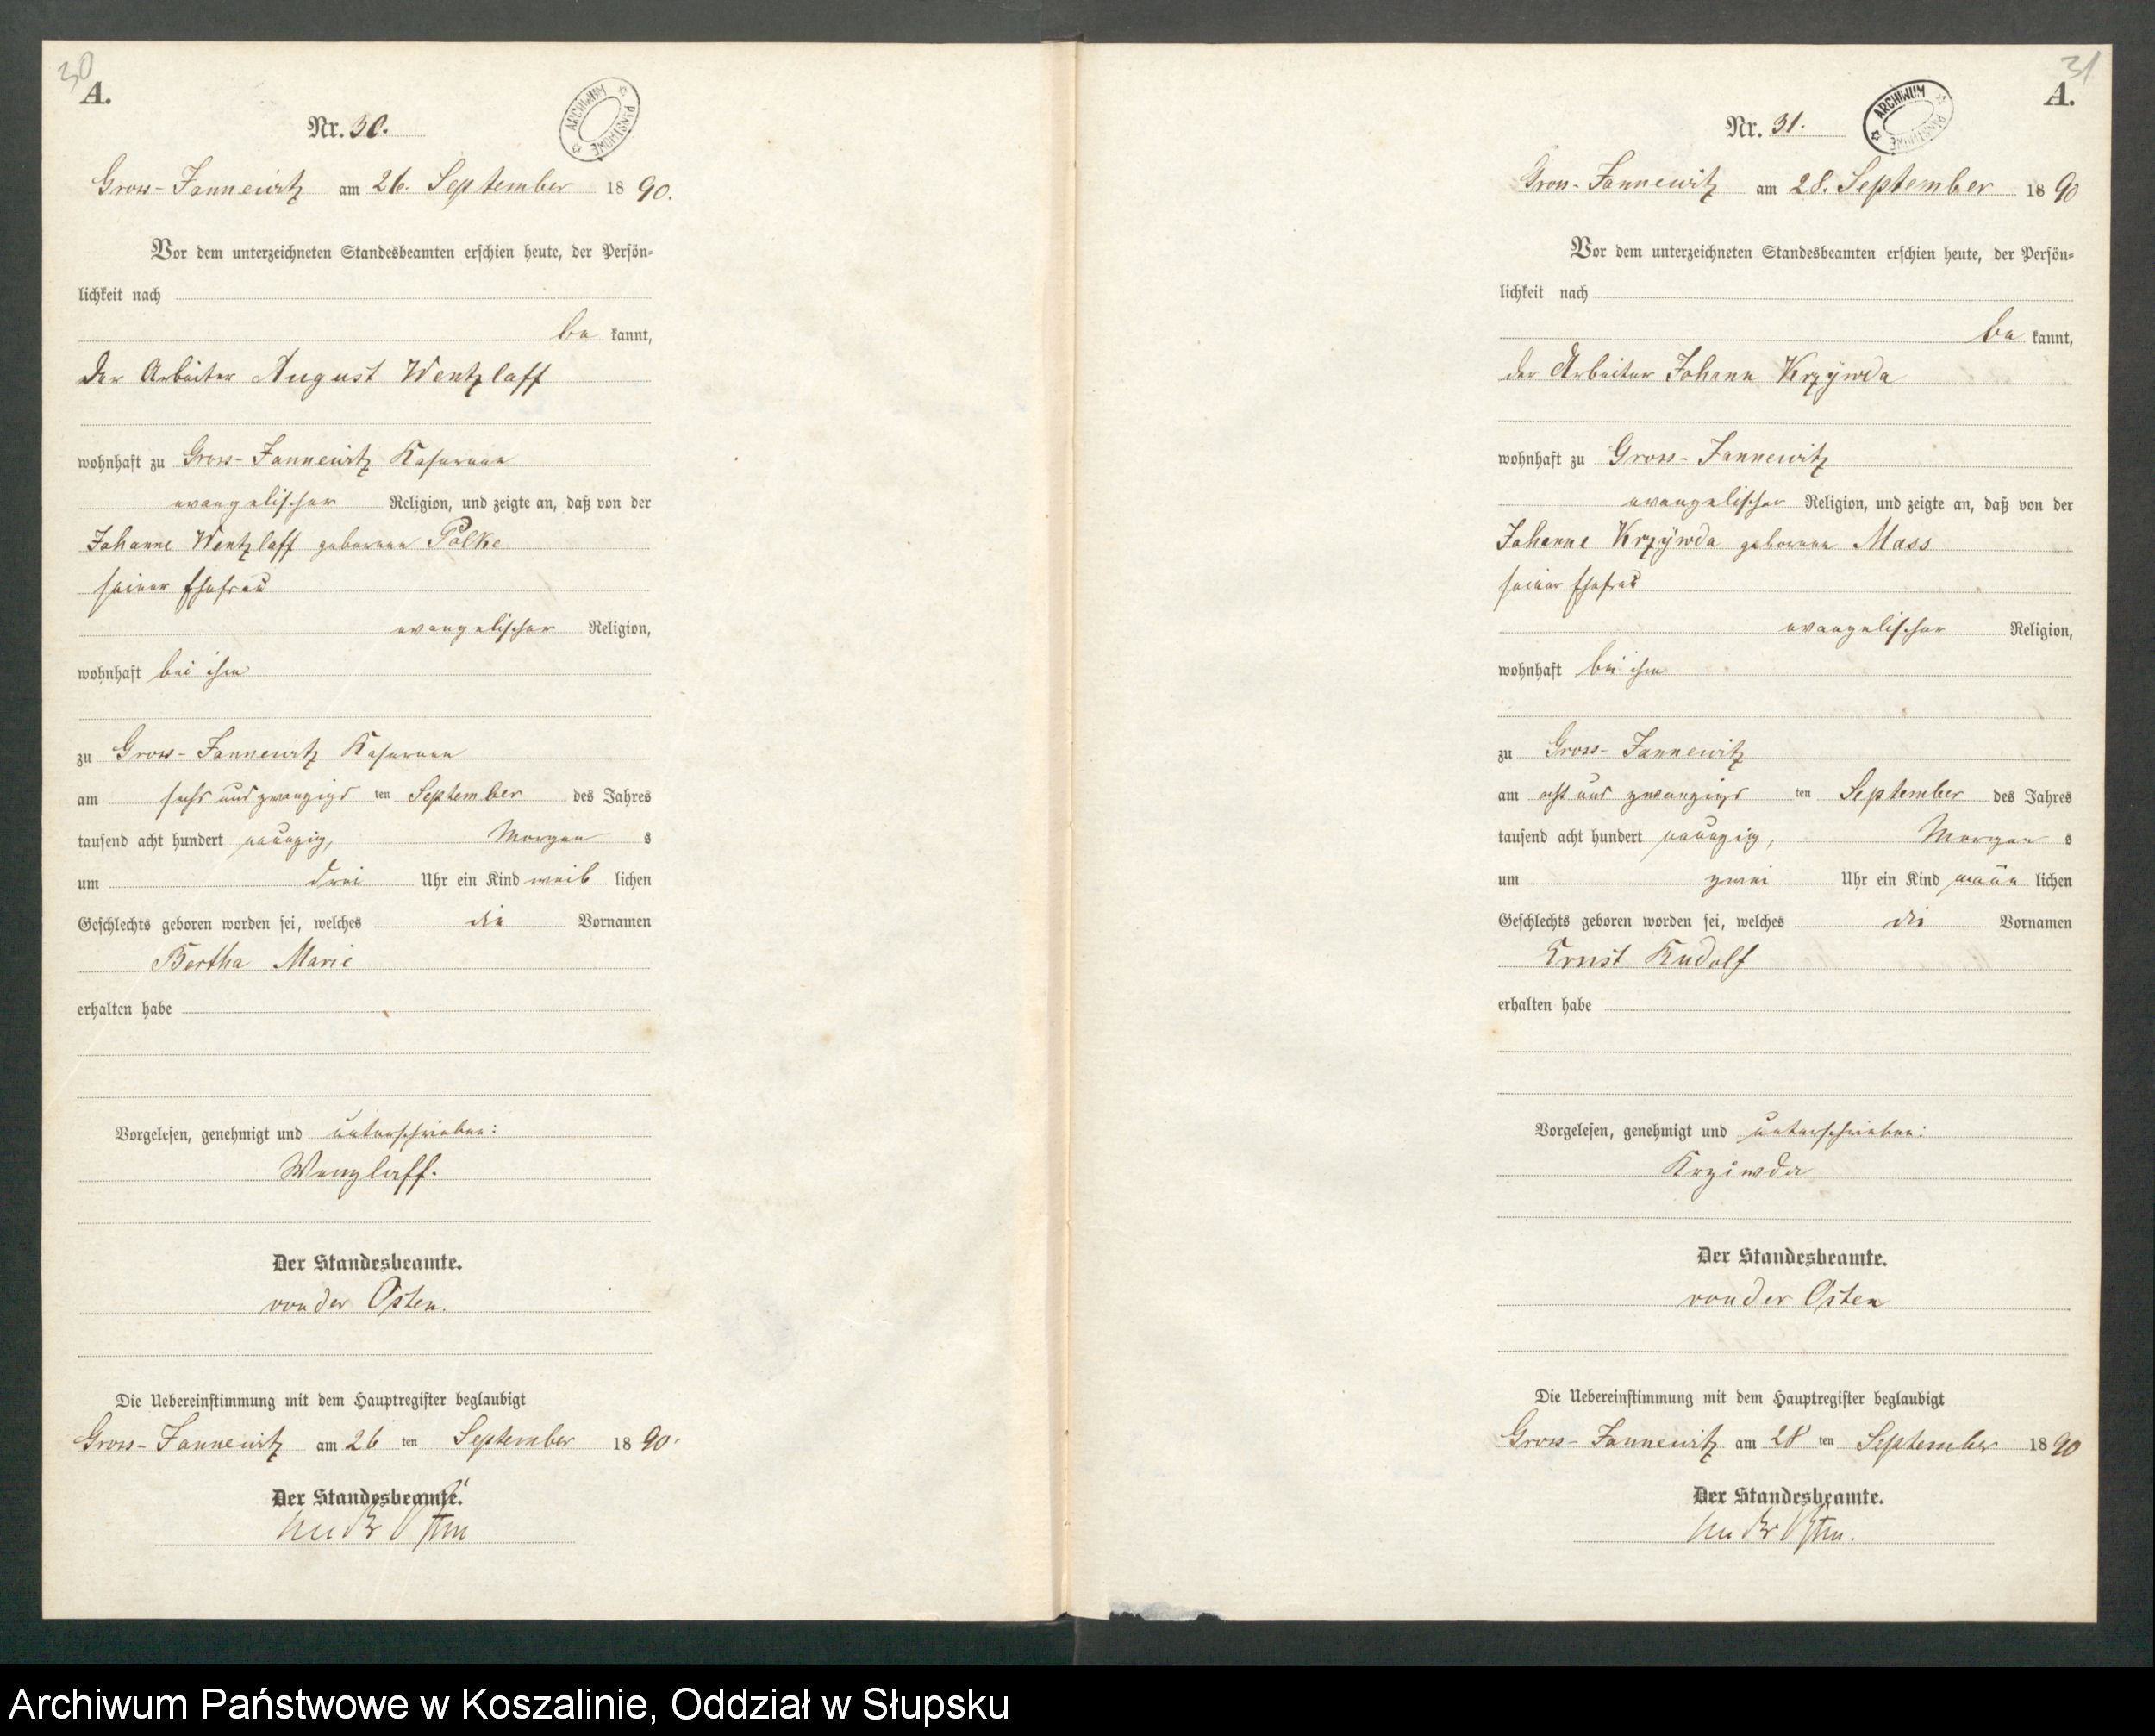 30
A.
Nr. 30.
ARCHIWUM PAŃSTWOWE
Gross-Jannewitz am 26. September 1890.
Vor dem unterzeichneten Standesbeamten erschien heute, der Persön-
lichkeit nach
be kannt,
der Arbeiter August Wentzlaff
wohnhaft zu Gross-Jannewitz Kasernen
evangelischer Religion, und zeigte an, daß von der
Johanne Wentzlaff geborenen Polke
seiner Ehefrau
evangelischer Religion,
wohnhaft bei ihm
zu Gross-Jannewitz Kasernen
am sechs und zwanzigs ten September des Jahres
tausend acht hundert neunzig, Morgen s
um drei Uhr ein Kind weib lichen
Geschlechts geboren worden sei, welches die Vornamen
Bertha Marie
erhalten habe
Vorgelesen, genehmigt und unterschrieben:
Wenzlaff.
Der Standesbeamte.
von der Osten.
Die Uebereinstimmung mit dem Hauptregister beglaubigt
Gross-Jannewitz am 26 ten September 1890.
Der Standesbeamte.
von der Osten
31
A.
Nr. 31.
ARCHIWUM PAŃSTWOWE
Gross-Jannewitz am 28. September 1890
Vor dem unterzeichneten Standesbeamten erschien heute, der Persön-
lichkeit nach
be kannt,
der Arbeiter Johann Krzÿwda
wohnhaft zu Gross-Jannewitz
evangelischer Religion, und zeigte an, daß von der
Johanne Krzÿwda geborenen Mass
seiner Ehefrau
evangelischer Religion,
wohnhaft bei ihm
zu Gross-Jannewitz
am acht und zwanzigs ten September des Jahres
tausend acht hundert neunzig, Morgen s
um zwei Uhr ein Kind männ lichen
Geschlechts geboren worden sei, welches die Vornamen
Ernst Rudolf
erhalten habe
Vorgelesen, genehmigt und unterschrieben:
Krziwda
Der Standesbeamte.
von der Osten
Die Uebereinstimmung mit dem Hauptregister beglaubigt
Gross-Jannewitz am 28 ten September 1890
Der Standesbeamte.
von der Osten.
Archiwum Państwowe w Koszalinie, Oddział w Słupsku